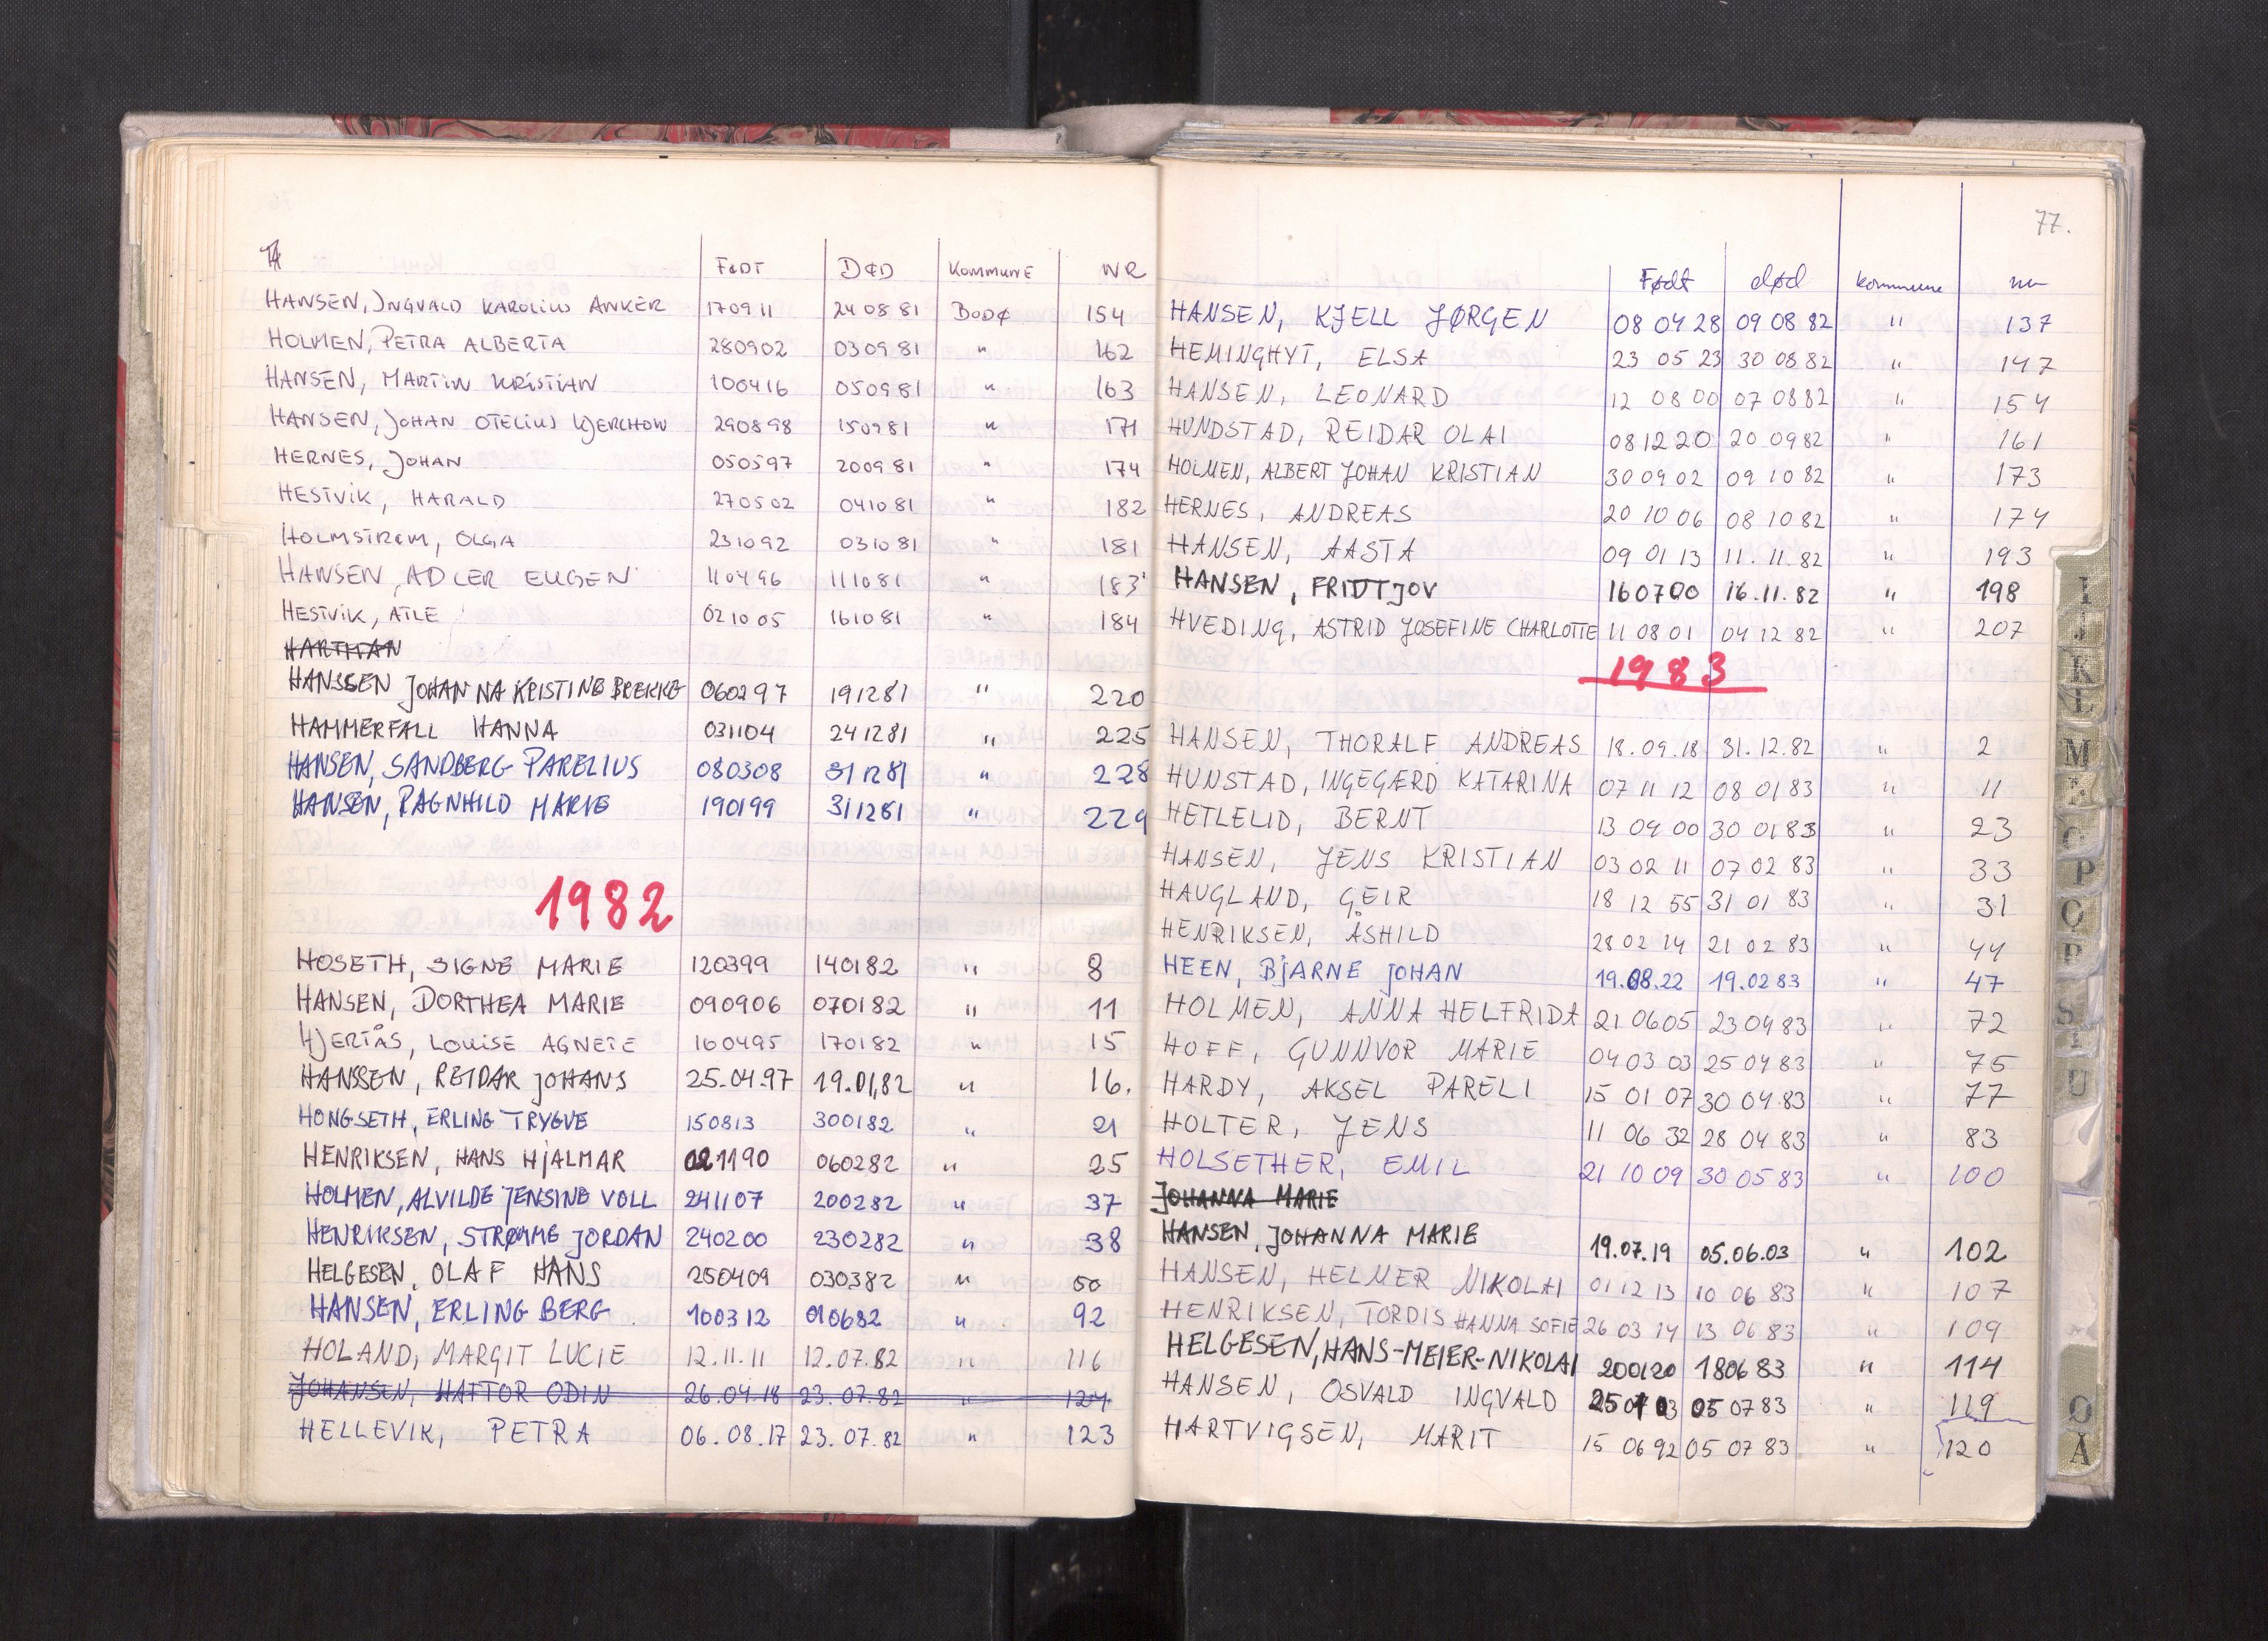 FØDT DØD KOMMUNE NR
HANSEN, INGVALD KAROLIUS ANKER 170911 240881 BODØ 154
HOLMEN, PETRA ALBERTA 280902 030981 " 162
HANSEN, MARTIN KRISTIAN 100416 050981 " 163
HANSEN, JOHAN OTELIUS KJERCHOW 290898 150981 " 171
HERNES, JOHAN 050597 200981 " 174
HESTVIK, HARALD 270502 041081 " 182
HOLMSTRØM, OLGA 231092 031081 " 181
HANSEN, ADLER EUGEN 110496 111081 " 183
HESTVIK, ATLE 021005 161081 " 184
HARTMAN
HANSSEN JOHANNA KRISTINE BREKKE 060297 191281 " 220
HAMMERFALL HANNA 031104 241281 " 225
HANSEN, SANDBERG PARELIUS 080308 311281 " 228
HANSEN, RAGNHILD MARIE 190199 311281 " 229
1982
HOSETH, SIGNE MARIE 120399 140182 " 8
HANSEN, DORTHEA MARIE 090906 070182 " 11
HJERTÅS, LOUISE AGNETE 160495 170182 " 15
HANSSEN, REIDAR JOHANS 25.04.97 19.01.82 " 16.
HONGSETH, ERLING TRYGVE 150813 300182 " 21
HENRIKSEN, HANS HJALMAR 021190 060282 " 25
HOLMEN, ALVILDE JENSINE VOLL 241107 200282 " 37
HENRIKSEN, STRØMME JORDAN 240200 230282 " 38
HELGESEN, OLAF HANS 250409 030382 " 50
HANSEN, ERLING BERG 100312 010682 " 92
HOLAND, MARGIT LUCIE 12.11.11 12.07.82 " 116
JOHANSEN, HATTOR ODIN 26.04.18 23.07.82 " 124
HELLEVIK, PETRA 06.08.17 23.07.82 " 123
77.
Født død kommune nr
HANSEN, KJELL JØRGEN 08 04 28 09 08 82 " 137
HEMINGHYT, ELSA 23 05 23 30 08 82 " 147
HANSEN, LEONARD 12 08 00 07 08 82 " 154
HUNDSTAD, REIDAR OLAI 08 12 20 20 09 82 " 161
HOLMEN, ALBERT JOHAN KRISTIAN 30 09 02 09 10 82 " 173
HERNES, ANDREAS 20 10 06 08 10 82 " 174
HANSEN, AASTA 09 01 13 11.11.82 " 193
HANSEN, FRIDTJOV 160700 16.11.82 " 198
HVEDING, ASTRID JOSEFINE CHARLOTTE 11 08 01 04 12 82 " 207
1983
HANSEN, THORALF ANDREAS 18.09.18 31.12.82 " 2
HUNSTAD, INGEGÆRD KATARINA 07 11 12 08 01 83 " 11
HETLELID, BERNT 13 09 00 30 01 83 " 23
HANSEN, JENS KRISTIAN 03 02 11 07 02 83 " 33
HAUGLAND, GEIR 18 12 55 31 01 83 " 31
HENRIKSEN, ÅSHILD 28 02 14 21 02 83 " 44
HEEN, BJARNE JOHAN 19.08.22 19.02 83 " 47
HOLMEN, ANNA HELFRIDA 21 06 05 23 04 83 " 72
HOFF, GUNNVOR MARIE 04 03 03 25 04 83 " 75
HARDY, AKSEL PARELI 15 01 07 30 04 83 " 77
HOLTER, JENS 11 06 32 28 04 83 " 83
HOLSETHER, EMIL 21 10 09 30 05 83 " 100
JOHANNA MARIE
HANSEN, JOHANNA MARIE 19.07.19 05.06.03 " 102
HANSEN, HELMER NIKOLAI 01 12 13 10 06 83 " 107
HENRIKSEN, TORDIS HANNA SOFIE 26 03 14 13 06 83 " 109
HELGESEN, HANS-MEIER-NIKOLAI 200120 180683 " 114
HANSEN, OSVALD INGVALD 05 07 83 " 119
HARTVIGSEN, MARIT 15 06 92 05 07 83 " 120
I
J
K
L
M
O
P
Q
R
S
T
U
Ø
Å